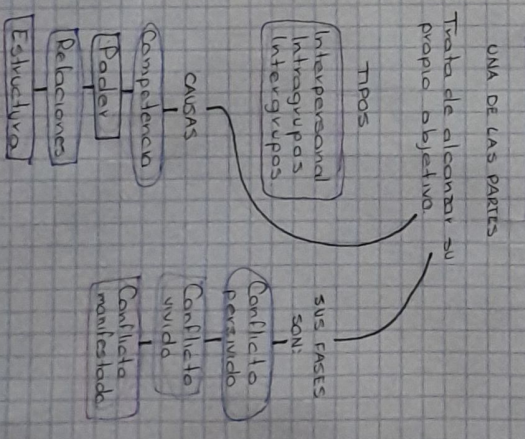 UNA DE LAS PARTES
Trata de alcanzar su
propio objetivo.
TIPOS
Interpersonal
Intragrupos
Intergrupos.
CAUSAS
Competencia
Poder
Relaciones
Estructura
SUS FASES
SON:
Conflicto
persivido
Conflicto
vivido
Conflicto
manifestado